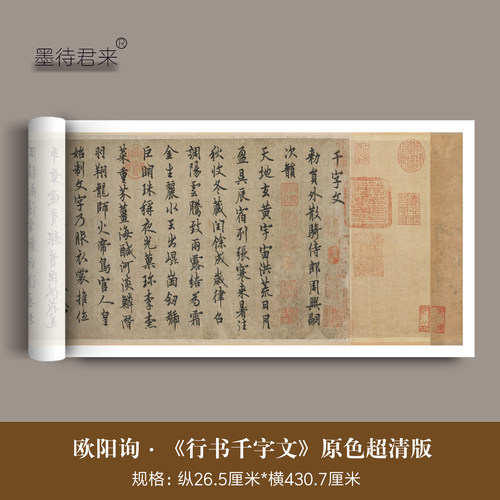 墨待君来®
千字文
勑員外散騎侍郎周興嗣
次韻
天地玄黃宇宙洪荒日月
盈昃辰宿列張寒来暑往
秋收冬藏閏餘成歲律召
調陽雲騰致雨露結為霜
金生麗水玉出崐崗劒號
巨闕珠稱夜光菓珎李柰
菜重芥薑海醎河淡鱗潛
羽翔龍師火帝鳥官人皇
始制文字乃服衣裳推位
欧阳询·《行书千字文》原色超清版
规格：纵26.5厘米*横430.7厘米